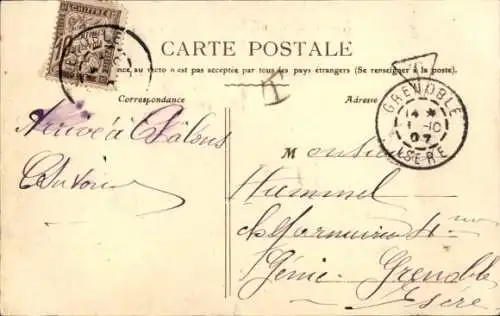 CHIFFRE
10
CARTE POSTALE
nce, au recto n'est pas acceptée par tous les pays étrangers (Se renseigner à la poste)
T
Correspondance
Adresse
GRENOBLE
14 *
1 -10
07
ISERE
Arrivé à Châlons
Monsieur
Hummel
Génie. Grenoble
Isère